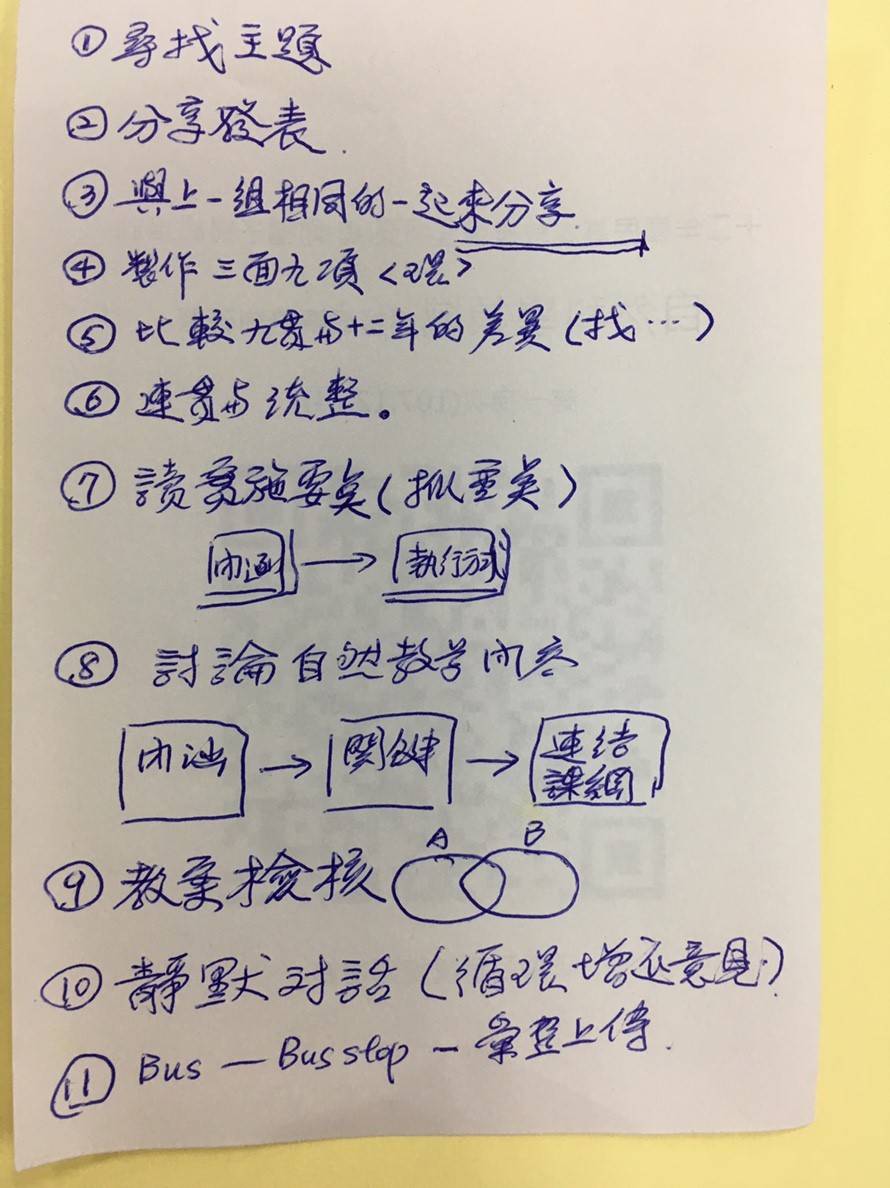 ① 尋找主題
② 分享發表.
③ 與上一組相同的一起來分享
④ 製作三面九項<環>
⑤ 比較九貫与十二年的差異(找…)
⑥ 連貫与統整。
⑦ 讀實施要點(抓重點)
內涵 → 執行方式
⑧ 討論自然教学內容
內涵 → 関鍵 → 連结課綱
A B
⑨ 教案檢核
⑩ 靜默对話(循環增返意見)
⑪ Bus — Bus stop - 彙整上傳.